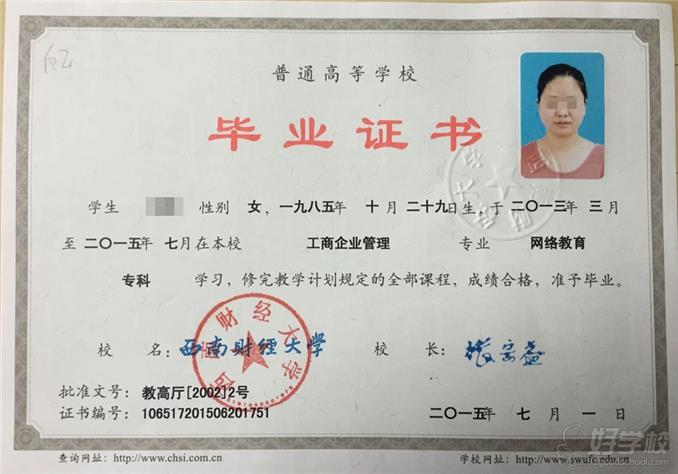 普通高等学校
毕业证书
学生 性别 女，一九八五年 十 月 二十九日生，于 二〇一三年 三 月
至 二〇一五年 七 月在本校 工商企业管理 专业 网络教育
专科 学习，修完教学计划规定的全部课程，成绩合格，准予毕业。
校 名：西南财经大学 校 长：张宗益
西南财经大学
批准文号：教高厅[2002]2号
证书编号：106517201506201751 二〇一五年 七 月 一 日
查询网址：http://www.chsi.com.cn 学校网址：http://www.swufe.edu.cn
好学校